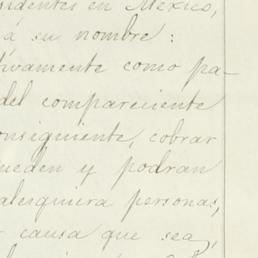 sidentes en México,
á su nombre:
tivamente como pa-
del compareciente
onsiguiente, cobrar
ueden y podran
alesquiera personas,
causa que sea,